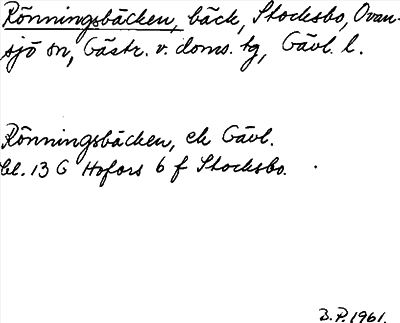 Rönningsbäcken, bäck, Stocksbo, Ovan-
sjö sn, Gästr. v. doms. tg, Gävl. l.
Rönningsbäcken, ek Gävl.
bl. 13 G Hofors 6 f Stocksbo.
B.P. 1961.